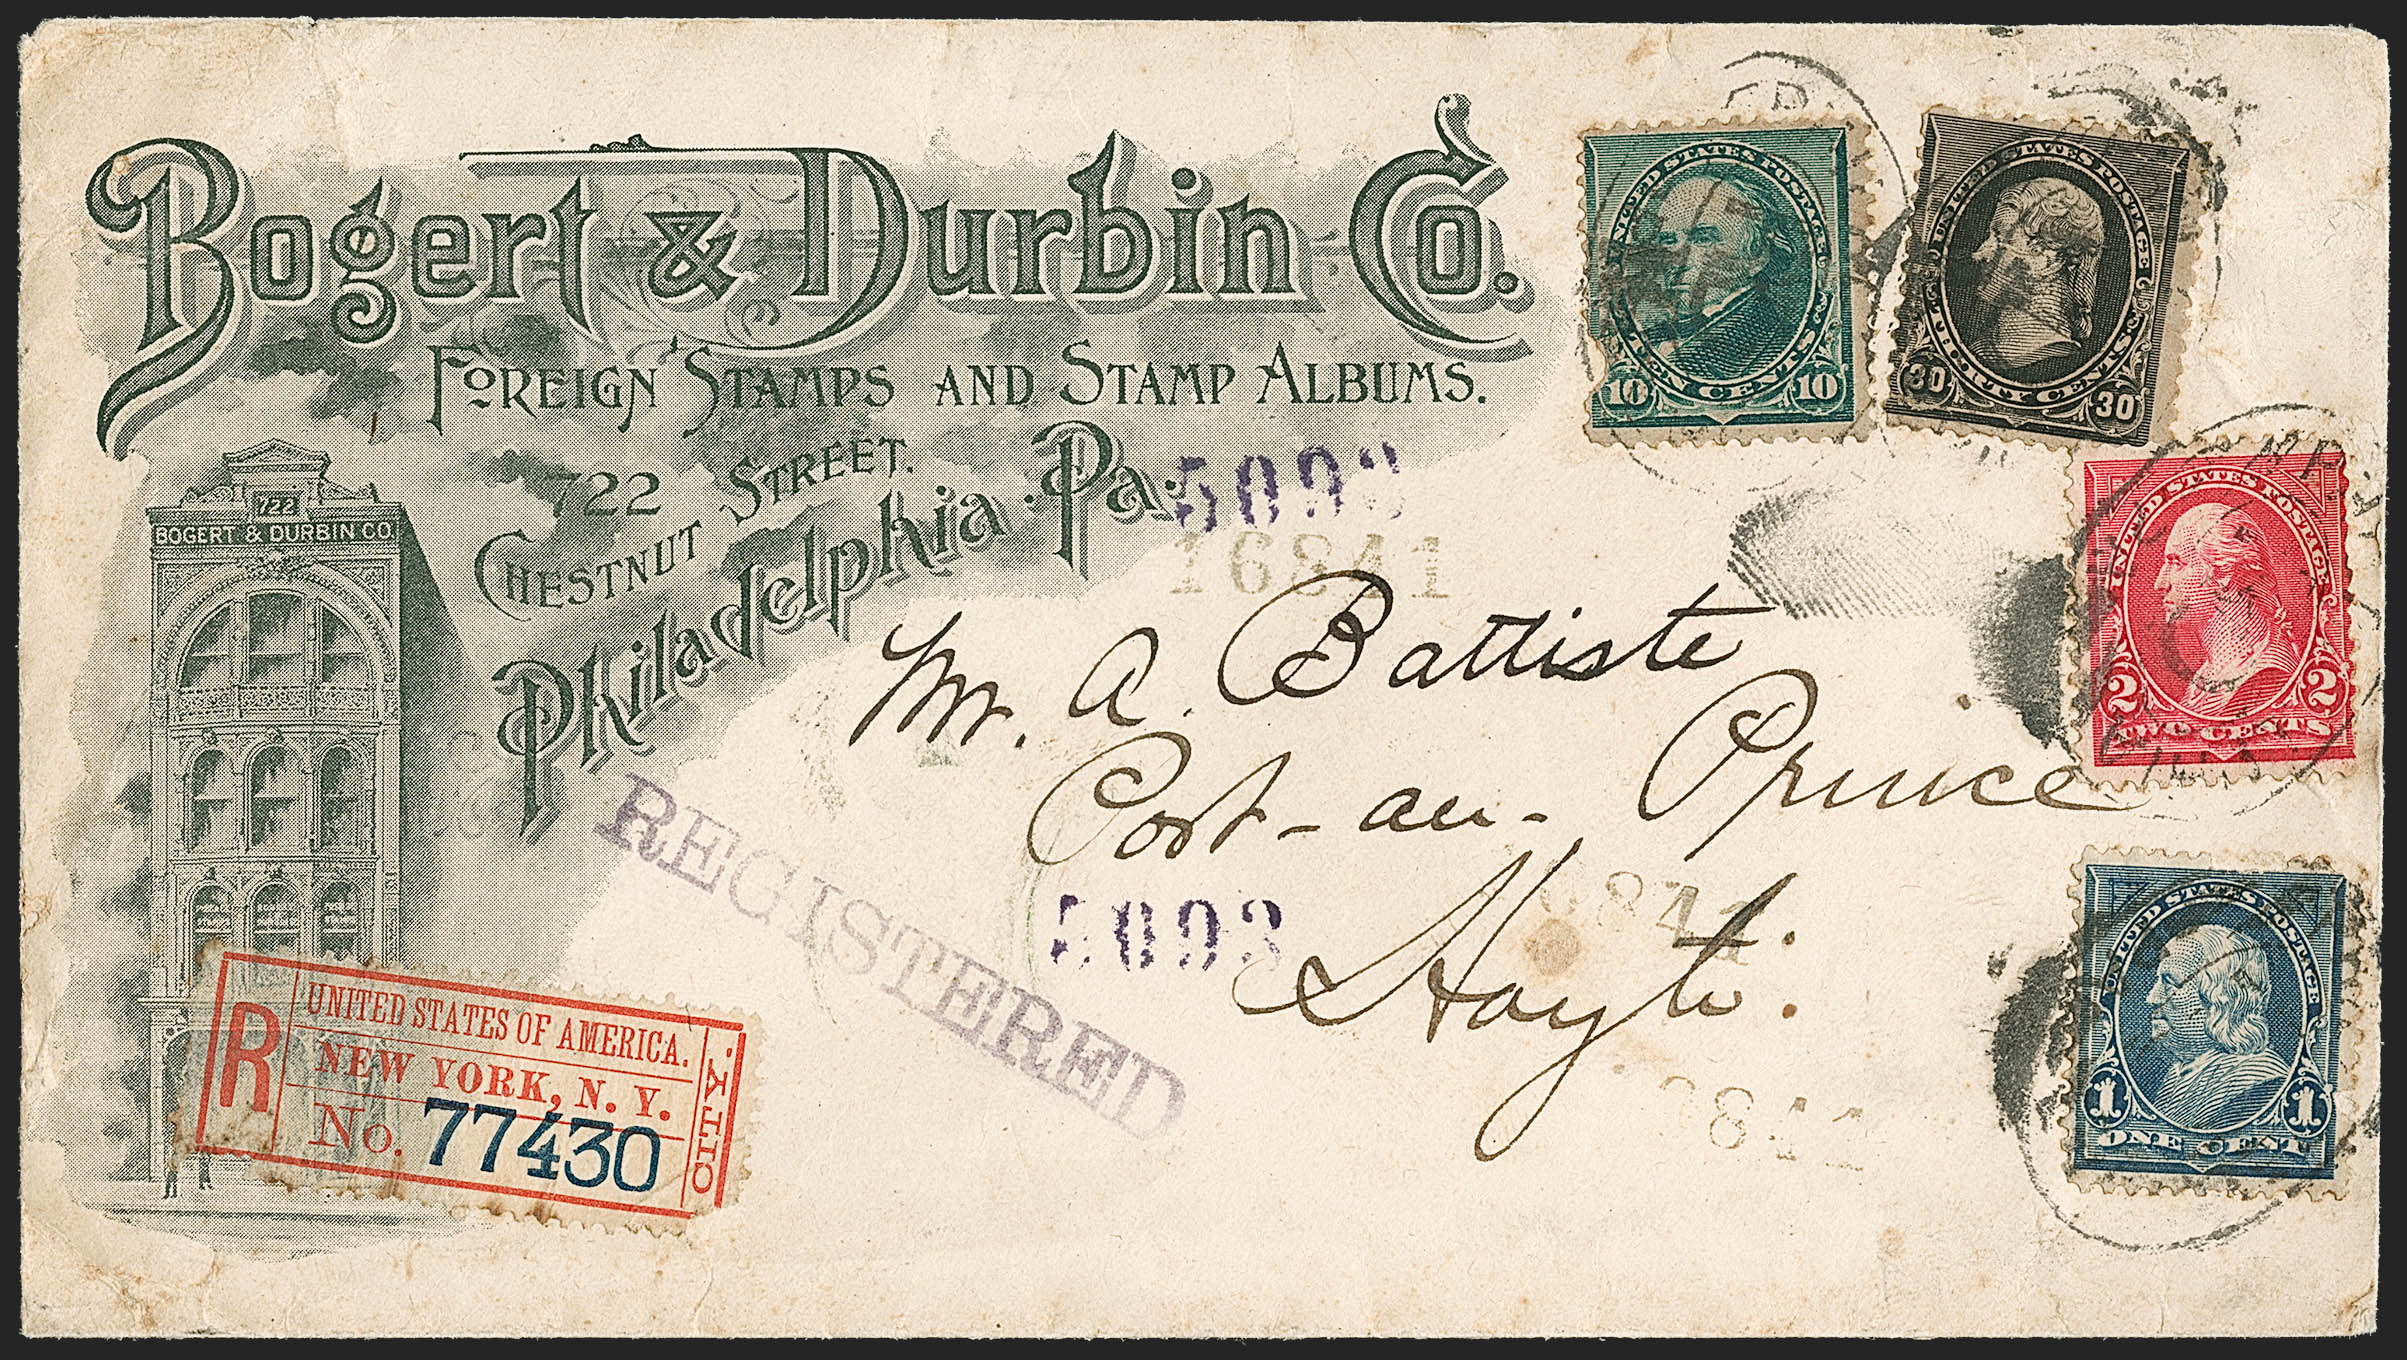 Bogert & Durbin Co.
FOREIGN STAMPS AND STAMP ALBUMS.
722 CHESTNUT STREET.
Philadelphia Pa.
722
BOGERT & DURBIN CO.
5093
16841
Mr. A. Battiste
Port-au-Prince
Hayti.
5093
REGISTERED
R
UNITED STATES OF AMERICA.
NEW YORK, N. Y.
No. 77430
CITY.
UNITED STATES POSTAGE
10 TEN CENTS 10
UNITED STATES POSTAGE
30 THIRTY CENTS 30
UNITED STATES POSTAGE
2 2
TWO CENTS
UNITED STATES POSTAGE
1 1
ONE CENT